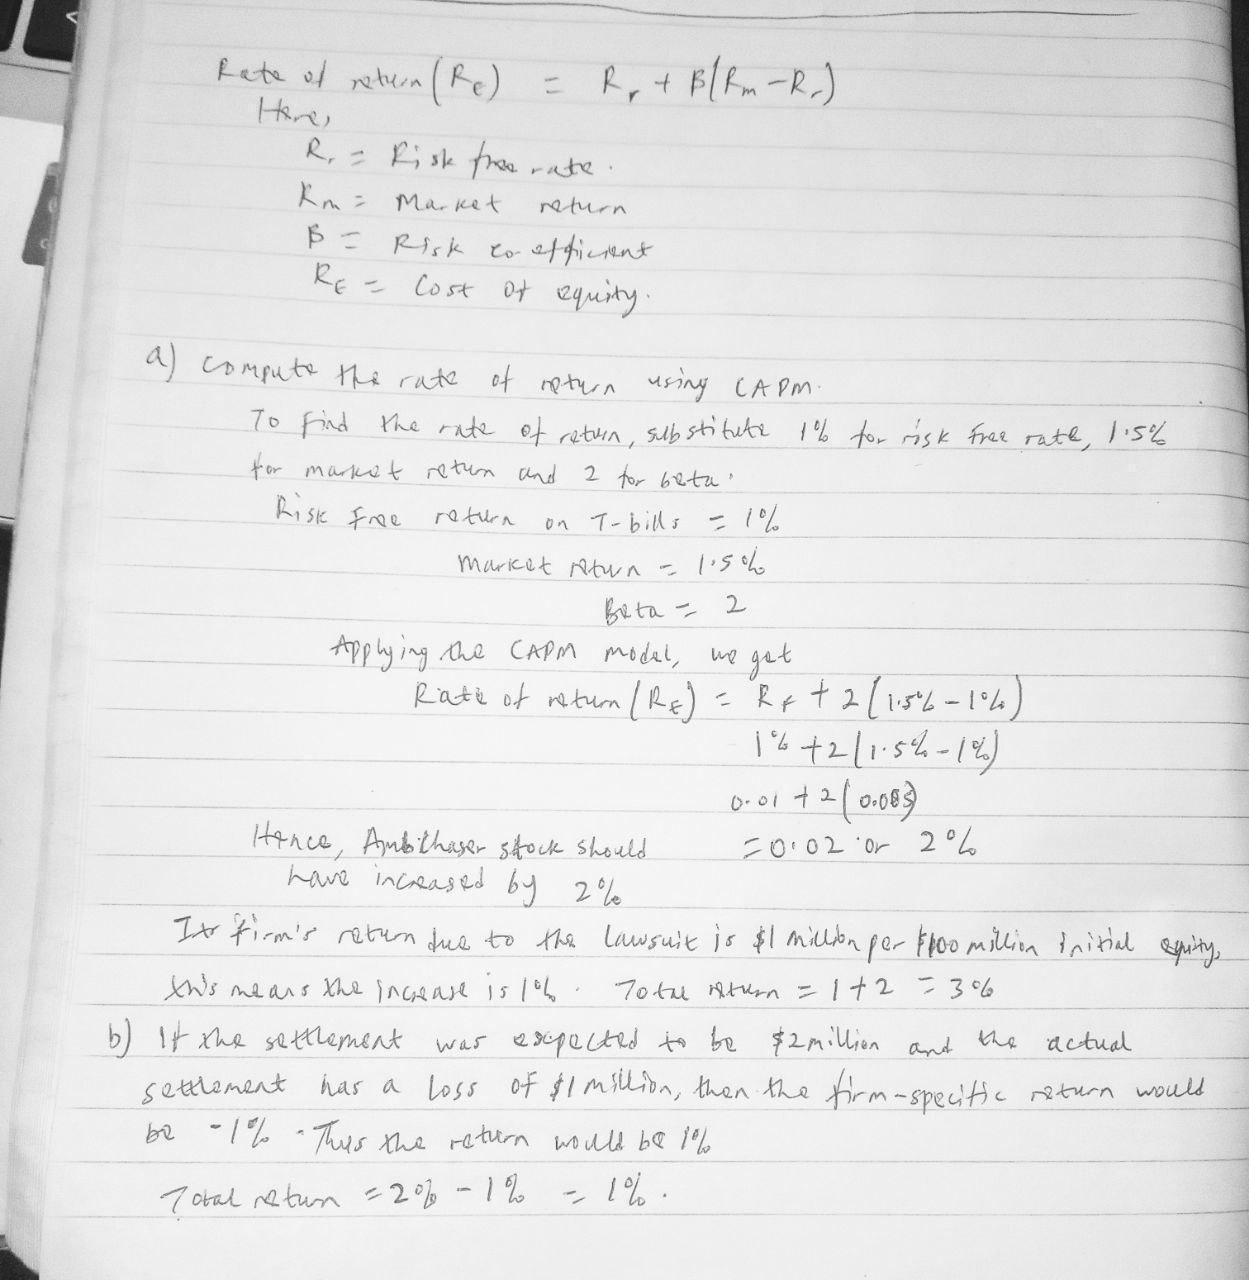 Rate of return (Re) = Rr + B(Rm - Rr)
Here,
Rr = Risk free rate.
Rm = Market return
B = Risk co efficient
RE = Cost of equity.
a) compute the rate of return using CAPM.
To find the rate of return, substitute 1% for risk free rate, 1.5%
for market return and 2 for beta.
Risk free return on T-bills = 1%
market return = 1.5%
Beta = 2
Applying the CAPM model, we get
Rate of return (RE) = RF + 2(1.5% - 1%)
1% + 2(1.5% - 1%)
0.01 + 2(0.005)
= 0.02 or 2%
Hence, stock should
have increased by 2%
firm's return due to the lawsuit is $1 million per $100 million initial equity,
this means the increase is 1%. Total return = 1+2 = 3%
b) If the settlement was expected to be $2million and the actual
settlement has a loss of $1 million, then the firm-specific return would
be -1%. Thus the return would be 1%
Total return = 2% - 1% = 1%.